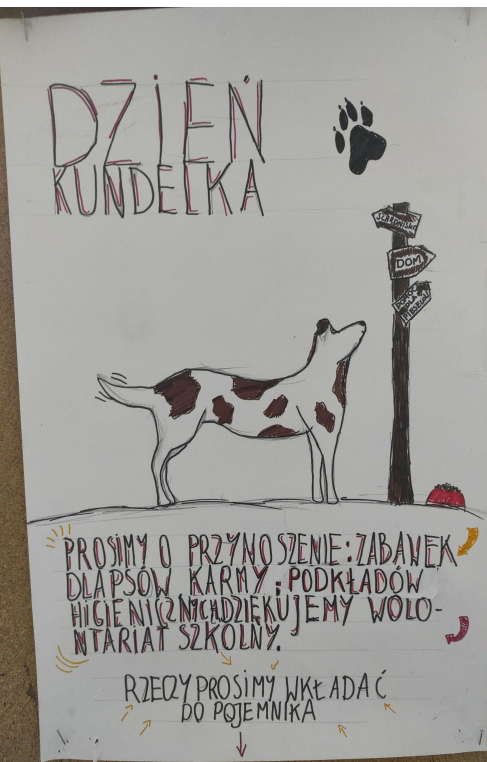 DZIEŃ
KUNDELKA
SCHRONISKO
DOM
DLA
PROSIMY O PRZYNOSZENIE: ZABAWEK
DLA PSÓW KARMY, PODKŁADÓW
HIGIENICZNYCH, DZIĘKUJEMY WOLO-
NTARIAT SZKOLNY.
RZECZY PROSIMY WKŁADAĆ
DO POJEMNIKA